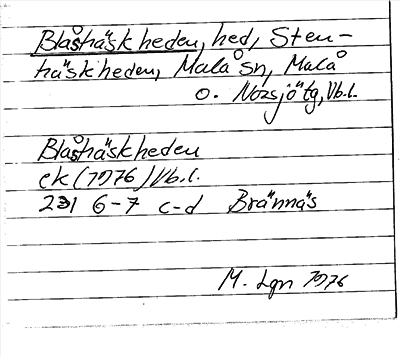 Blåshäskheden, hed, Sten-
häskheden, Malå sn, Malå
o. Norsjö tg, Vb.l.
Blåshäskheden
ek (1976) Vb.l.
231 6-7 c-d Brännäs
M. Lgn 1976